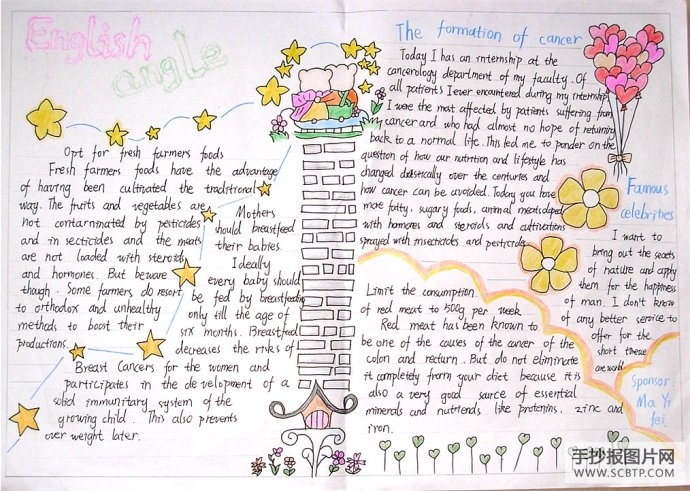 English
angle
Opt for fresh farmers foods
Fresh farmers foods have the advantage
of having been cultivated the traditronal
way. The fruits and vegetables are
not contarninated by pesticides
and in secticides and the meats
are not loaded with steroids
and hormones. But beware
though. Some farmers do resort
to orthodox and unhealthy
methods to boost their
productions.
Mothers
should breastfeed
their babies.
Ideally
every baby should
be fed by breastfeeding
only till the age of
six months. Breastfeed
decreases the risks of
Breast Cancers for the women and
participates in the development of a
solid immunitary system of the
growing child. This also prevents
over weight later.
The formation of cancer
Today I has an internship at the
cancerology department of my faculty. Of
all patients I ever encountered during my internship,
I were the most affected by patients suffering from
cancer and who had almost no hope of returning
back to a normal life. This led me to ponder on the
question of how our nutrition and lifestyle has
changed drastically over the centuries and
how cancer can be avoided. Today you have
more fatty, sugary foods, animal meats doped
with hormones and steroids and cultivations
sprayed with insecticides and pesticides.
Limit the consumption
of red meat to 500g per week
Red meat has been known to
be one of the causes of the cancer of the
colon and rectum. But do not eliminate
it completely from your diet because it is
also a very good source of essential
minerals and nutriends like protenins, zinc and
iron.
Famous
celebrities
I want to
bring out the secrets
of nature and apply
them for the happiness
of man. I don't know
of any better service to
offer for the
short time
we are
Sponsor:
Ma Yi
fei.
手抄报图片网
WWW.SCBTP.COM